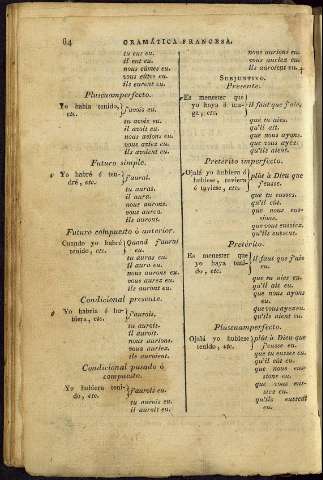 64 GRAMÁTICA FRANCESA.
tu eus eu.
il eut eu.
nous eûmes eu.
vous eûtes eu.
ils eurent eu.
Pluscuamperfecto.
Yo habia tenido, etc. } j'avois eu.
tu avois eu.
il avoit eu.
nous avions eu.
vous aviez eu.
ils avoient eu.
Futuro simple.
Yo habré ó tendré, etc. } j'aurai.
tu auras.
il aura.
nous aurons.
vous aurez.
ils auront.
Futuro compuesto ó anterior.
Cuando yo habré tenido, etc. } Quand j'aurai eu.
tu auras eu.
il aura eu.
nous aurons eu.
vous aurez eu.
ils auront eu.
Condicional presente.
Yo habria ó tubiera, etc. } j'aurois.
tu aurois.
il auroit.
nous aurions.
vous auriez.
ils auroient.
Condicional pasado ó compuesto.
Yo hubiera tenido, etc. } j'aurois eu.
tu aurois eu.
il auroit eu.
nous aurions eu.
vous auriez eu.
ils auroient eu.
SUBJUNTIVO.
Presente.
Es menester que yo haya ó tenga, etc. } il faut que j'aie,
que tu aies.
qu'il ait.
que nous ayons.
que vous ayez.
qu'ils aient.
Pretérito imperfecto.
Ojalá yo hubiera ó hubiese, tuviera ó tuviese, etc. } plût à Dieu que j'eusse.
que tu eusses.
qu'il eût.
que nous eussions.
que vous eussiez.
qu'ils eussent.
Pretérito.
Es menester que yo haya tenido, etc. } il faut que j'aie eu.
que tu aies eu.
qu'il ait eu.
que nous ayons eu.
que vous ayez eu.
qu'ils aient eu.
Pluscuamperfecto.
Ojalá yo hubiese tenido, etc. } plût à Dieu que j'eusse eu.
que tu eusses eu.
qu'il eût eu.
que nous eussions eu.
que vous eussiez eu.
qu'ils eussent eu.